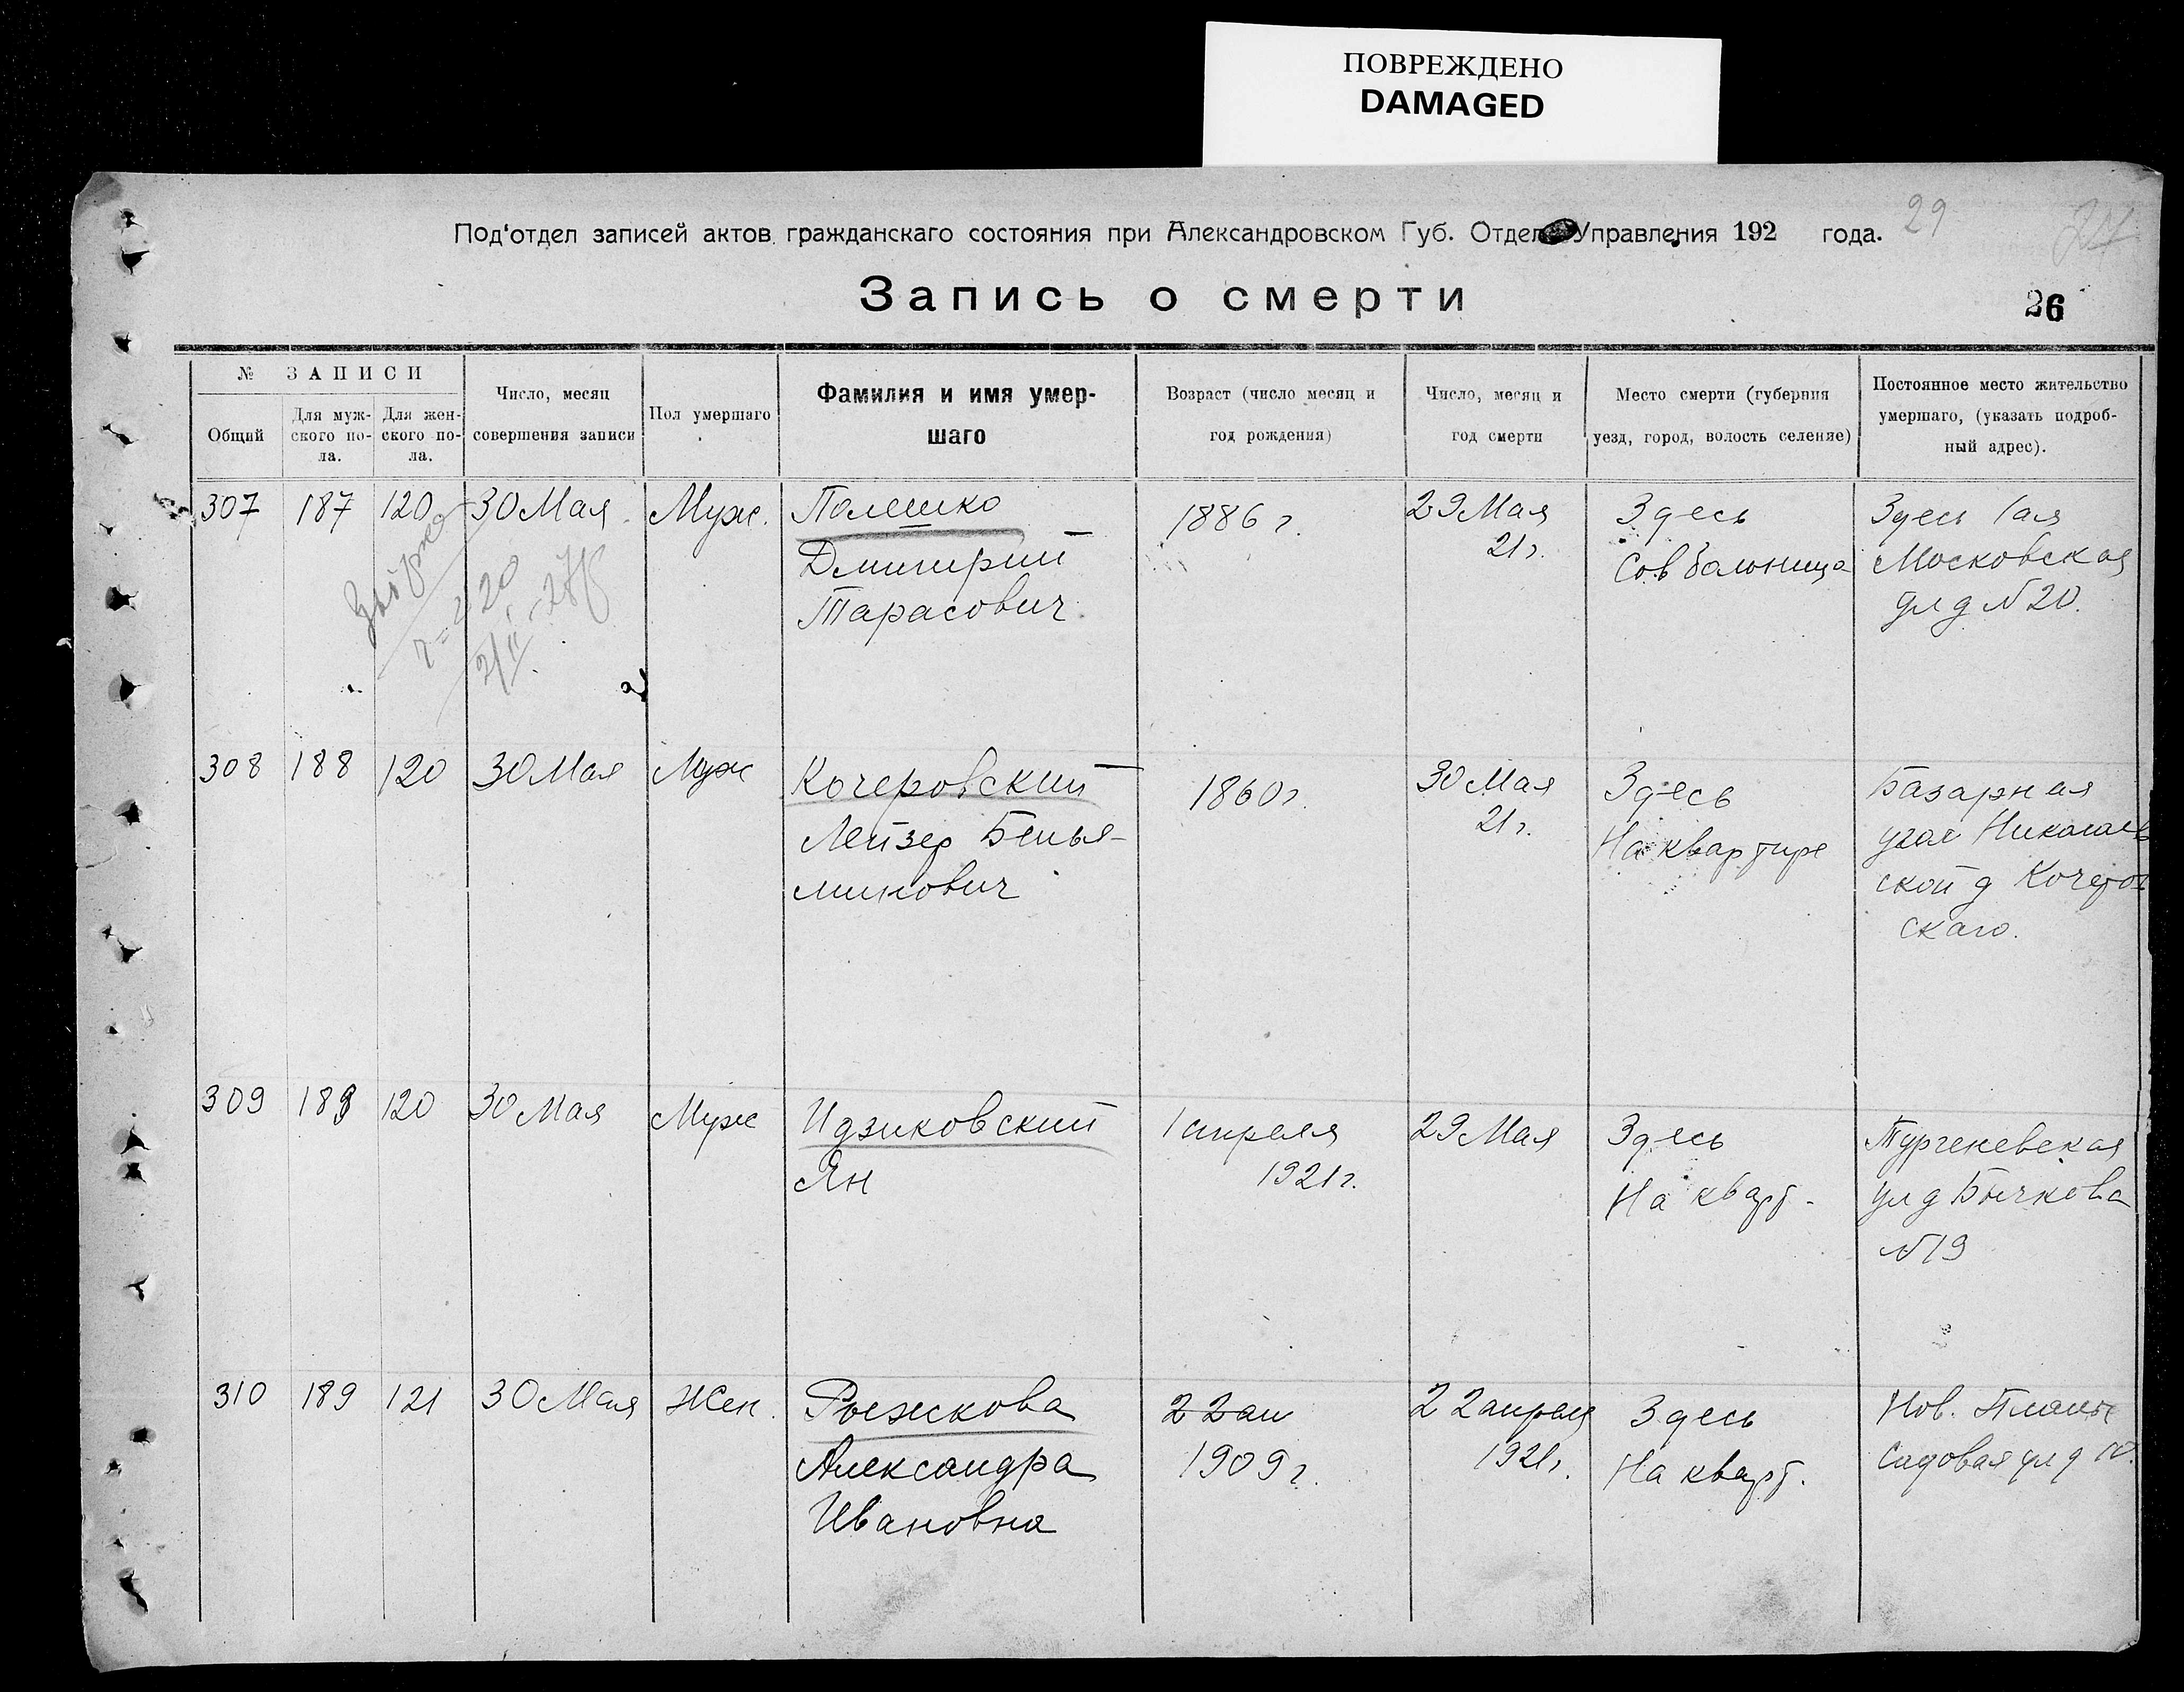 ПОВРЕЖДЕНО
DAMAGED
29
Под'отдел записей актов гражданскаго состояния при Александровском Губ. Отдел Управления 192 года.
Запись о смерти
26
№ ЗАПИСИ
Общий
Для муж-
ского по-
ла.
Для жен-
ского по-
ла.
Число, месяц
совершения записи
Пол умершаго
Фамилия и имя умер-
шаго
Возраст (число месяц и
год рождения)
Число, месяц и
год смерти
Место смерти (губерния
уезд, город, волость селение)
Постоянное место жительство
умершаго, (указать подроб-
ный адрес).
307
187
120
30 Мая
Муж.
Полешко
Дмитрий
Тарасович
1886 г.
29 Мая
21 г.
Здесь
Сов больница
Здесь 1ая
Московская
ул д N 20.
308
188
120
30 Мая
Муж
Кочеровский
Лейзер Бенья-
минович
1860 г.
30 Мая
21 г.
Здесь
На квартире
Базарная
угол Николаев
ской д Кочеров
скаго.
309
189
120
30 Мая
Муж
Идзиковский
Ян
1 апреля
1921 г.
29 Мая
Здесь
На кварт.
Тургеневская
ул д Бычкова
N 19
310
189
121
30 Мая
Жен.
Рыжкова
Александра
Ивановна
22 ап
1909 г.
22 апреля
1921 г.
Здесь
На кварт.
Нов. План
Садовая ул д 10.